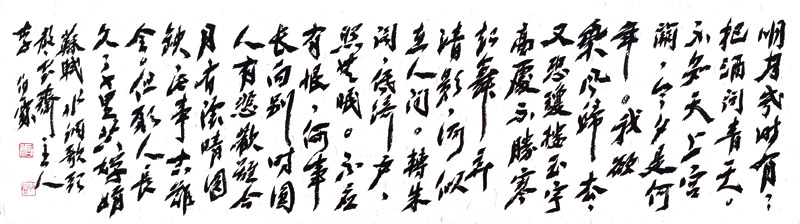 明月几时有？
把酒问青天。
不知天上宫
阙，今夕是何
年。我欲
乘风归去，
又恐瓊楼玉宇
高處不勝寒
起舞弄
清影，何似
在人间。轉朱
阁，低绮户，
照无眠。不应
有恨，何事
长向别时圆
人有悲歡離合
月有阴晴圆
缺，此事古難
全。但愿人长
久千里共婵娟
蘇軾水调歌头
斋主人
李